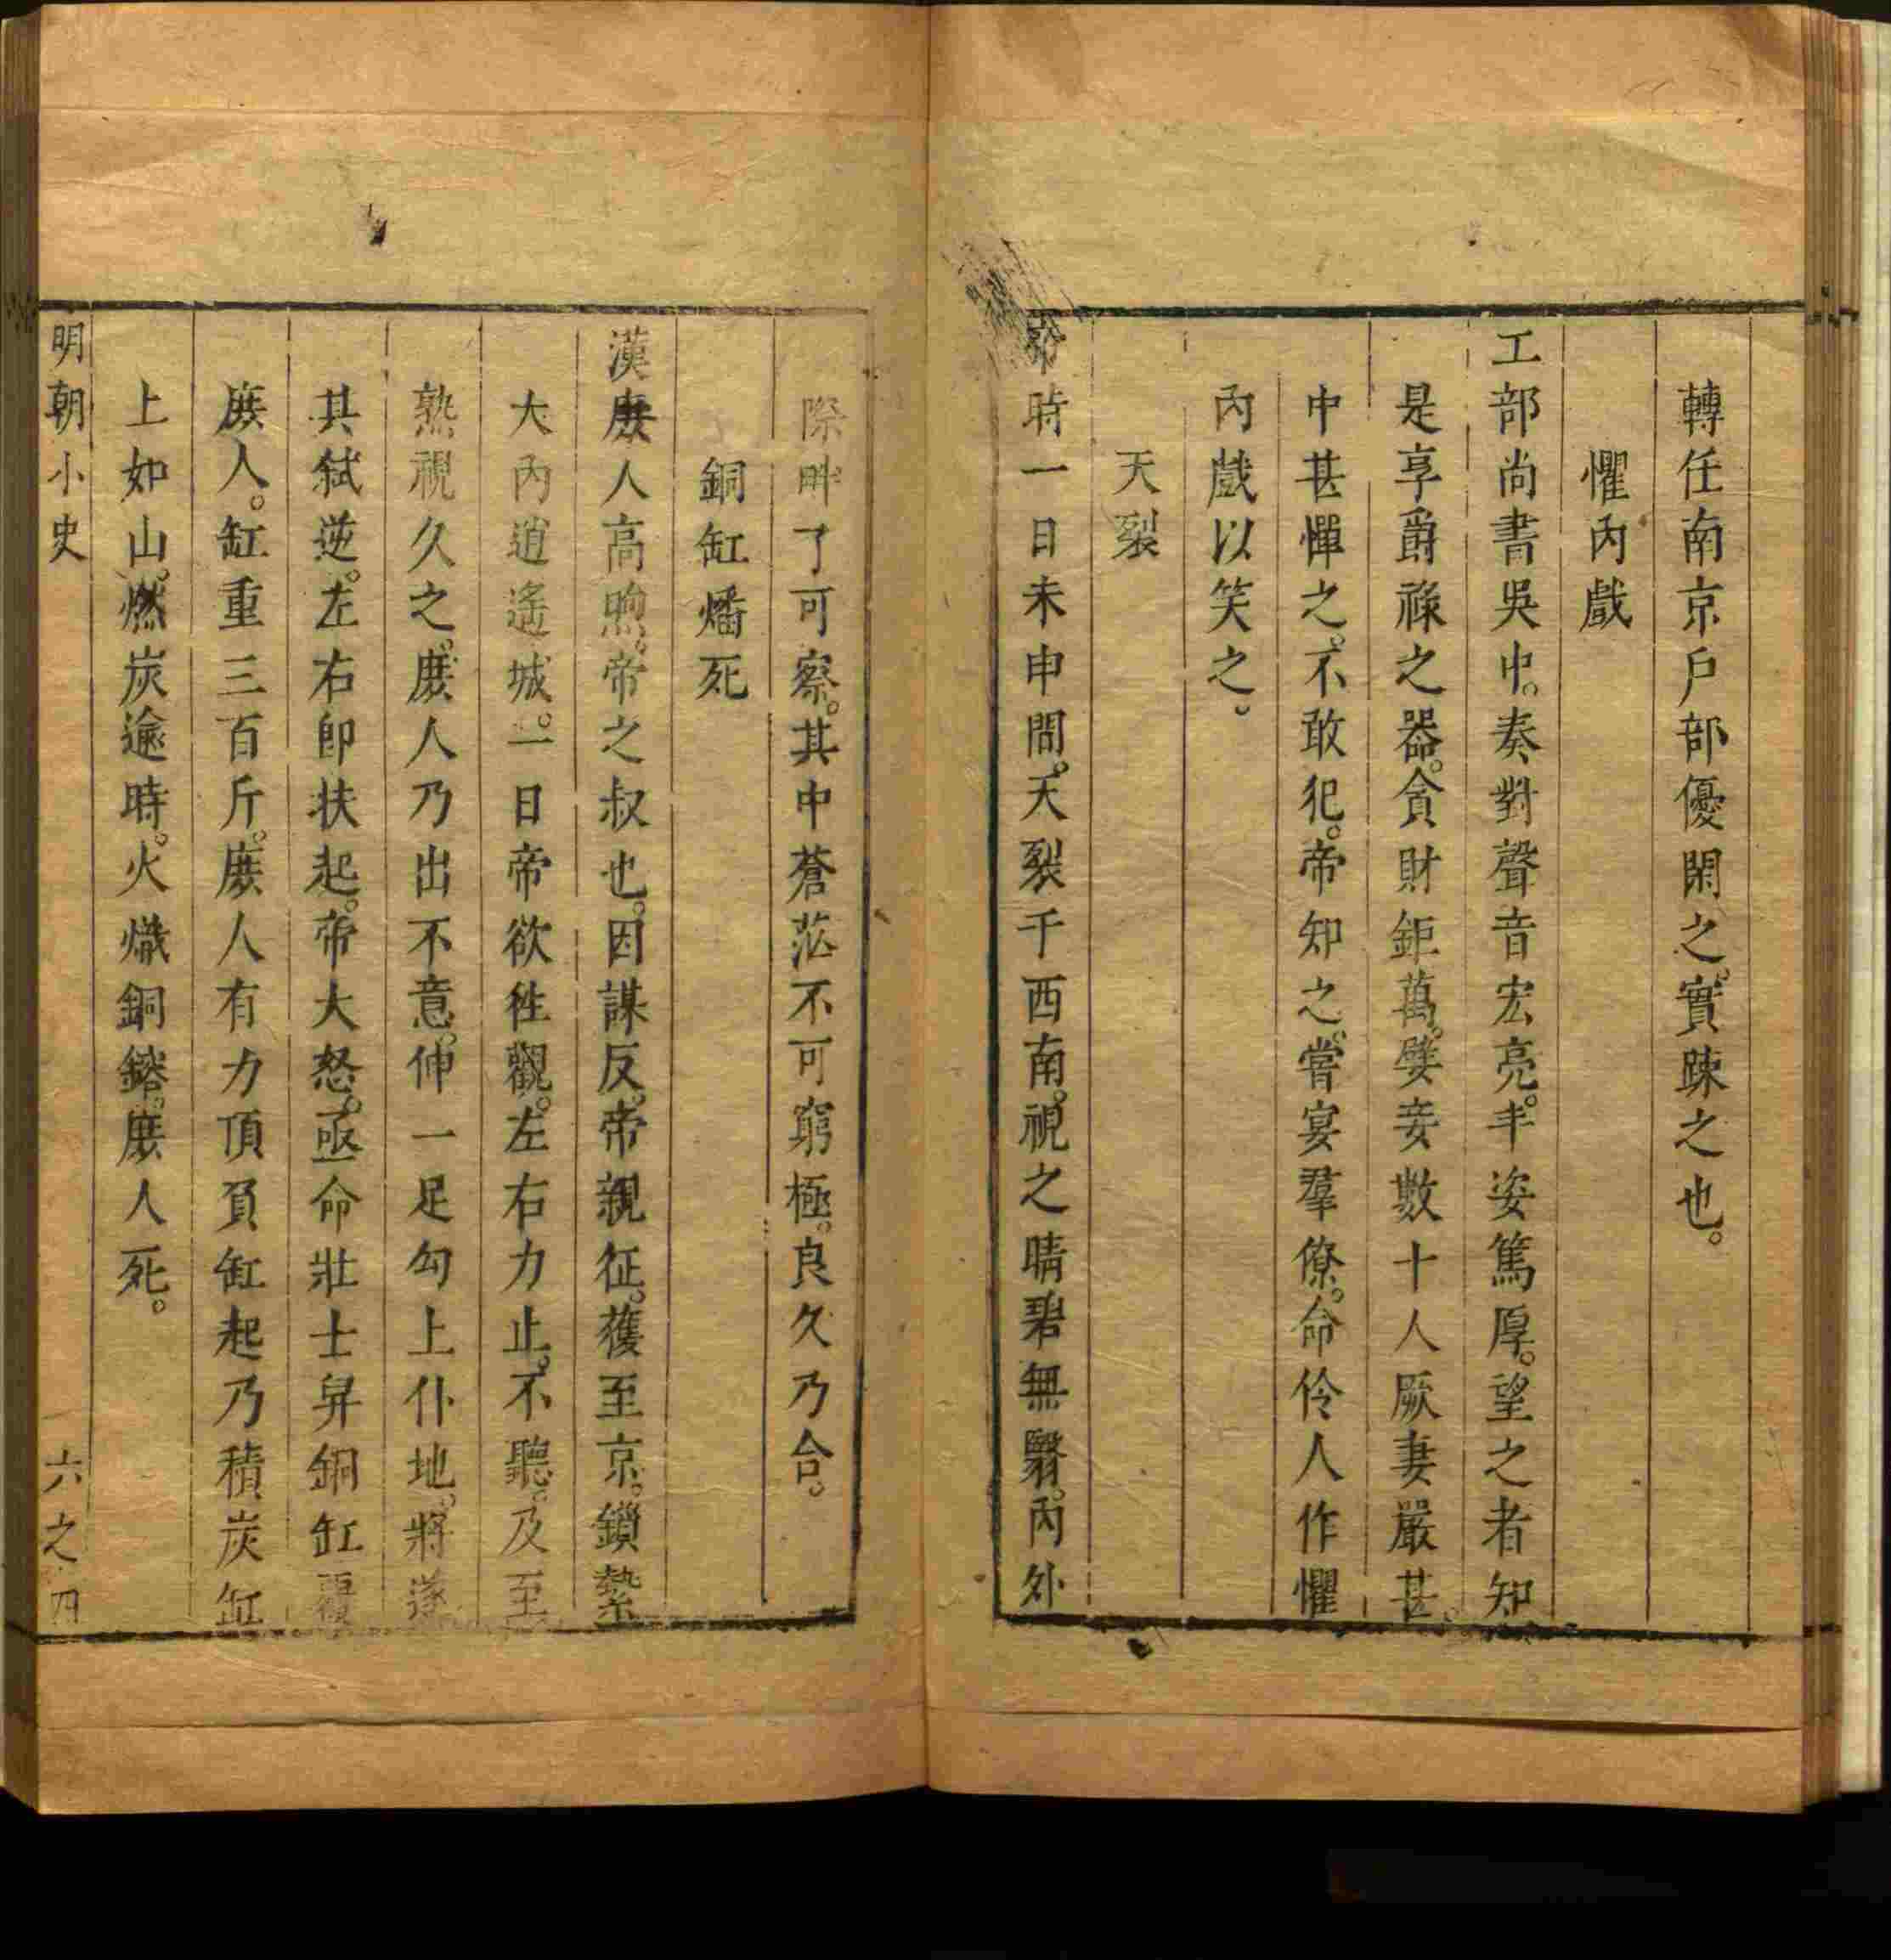 轉任南京戶部優閑之。實踈之也。
懼內戲
工部尚書吳中。奏對聲音宏亮。丰姿篤厚。望之者知
是享爵祿之器。貪財鉅萬。嬖妾數十人厥妻嚴甚。
中甚憚之。不敢犯。帝知之。嘗宴羣僚。命伶人作懼
內戲以笑之。
天裂
帝時一日未申間。天裂于西南。視之晴碧無翳。內外
際畔了可察。其中蒼茫不可窮極。良久乃合。
銅缸燔死
漢庻人高煦。帝之叔也。因謀反。帝親征。獲至京。鎖縶
大內逍遙城。一日帝欲徃觀。左右力止。不聽。及至
熟視久之。庻人乃出不意。伸一足勾上仆地。將遂
其弑逆。左右即扶起。帝大怒。亟命壯士舁銅缸覆
庻人。缸重三百斤。庻人有力頂負缸起乃積炭缸
上如山。燃炭逾時。火熾銅鎔。庻人死。
明朝小史
六之四